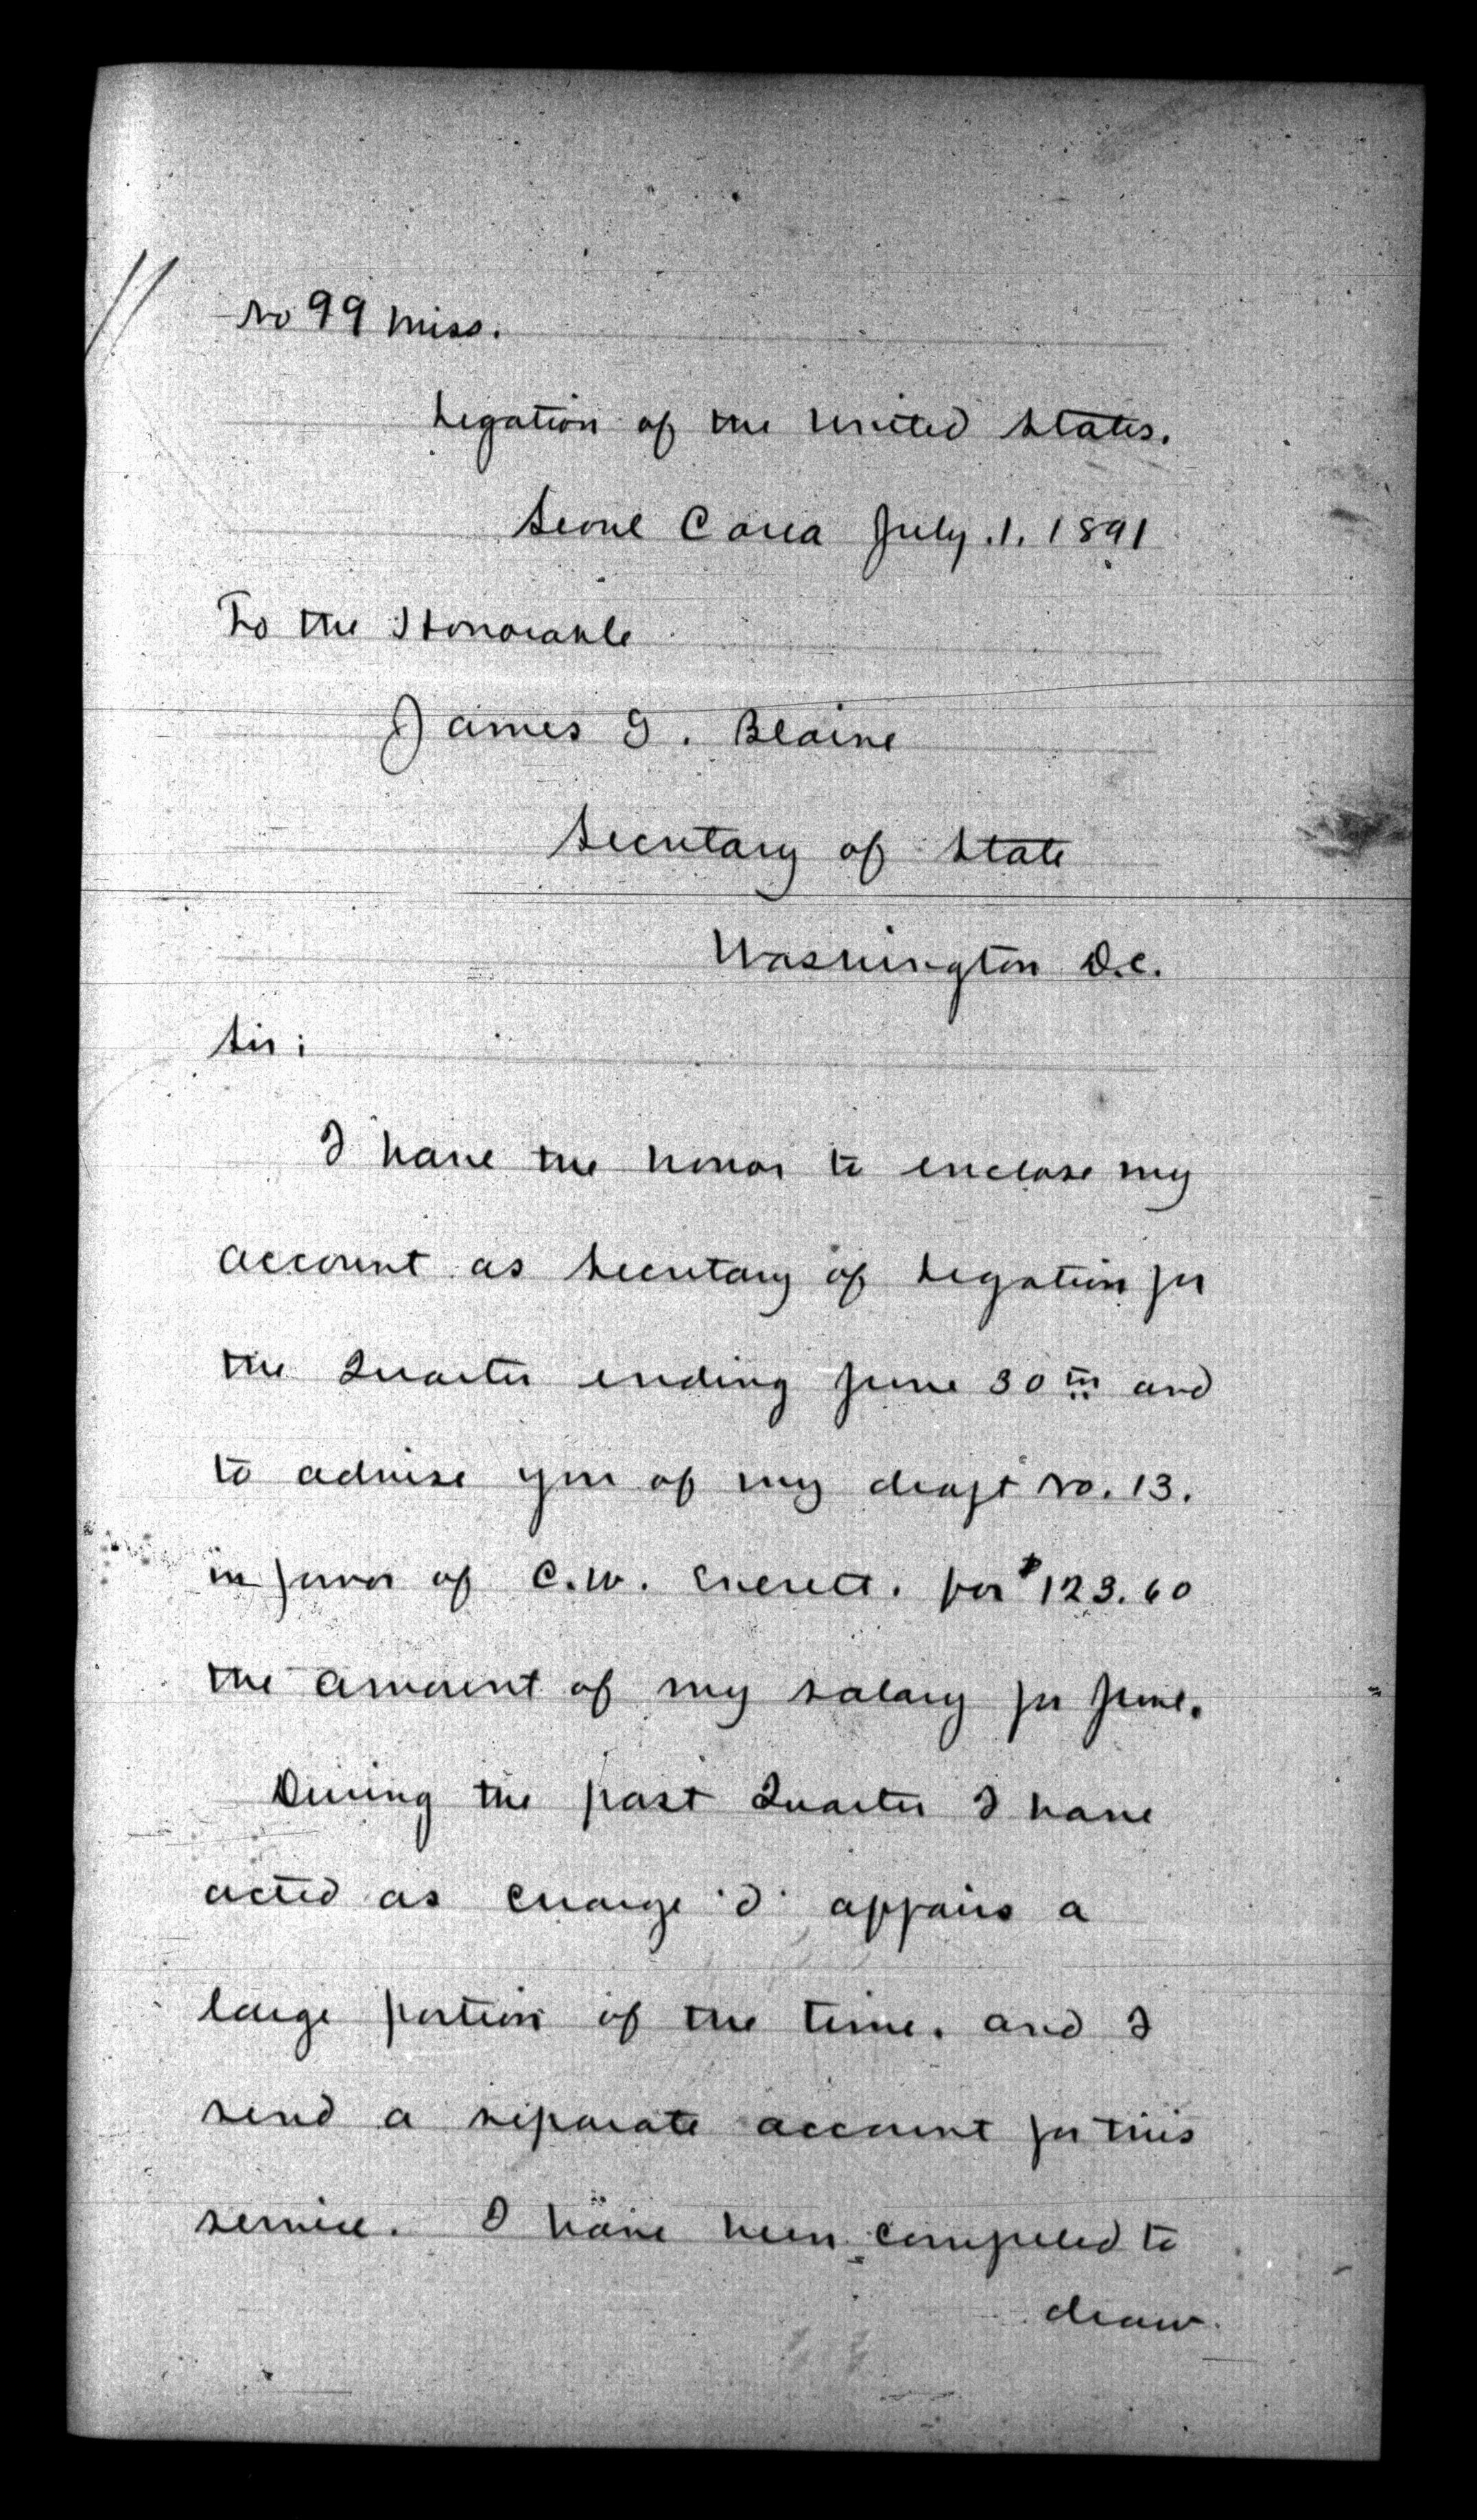 No 99 Miss.
Legation of the United States.
Seoul Corea July. 1. 1891
To the Honorable
James G. Blaine
Secretary of State
Washington D.C.
Sir:
I have the honor to enclose my
account as Secretary of Legation for
the Quarter ending June 30th and
to advise you of my draft No. 13.
in favor of C.W. Everett. for $123.60
the amount of my salary for June.
During the past Quarter I have
acted as Charge 'd' affairs a
large portion of the time. and I
send a separate account for this
service. I have been compeled to
draw